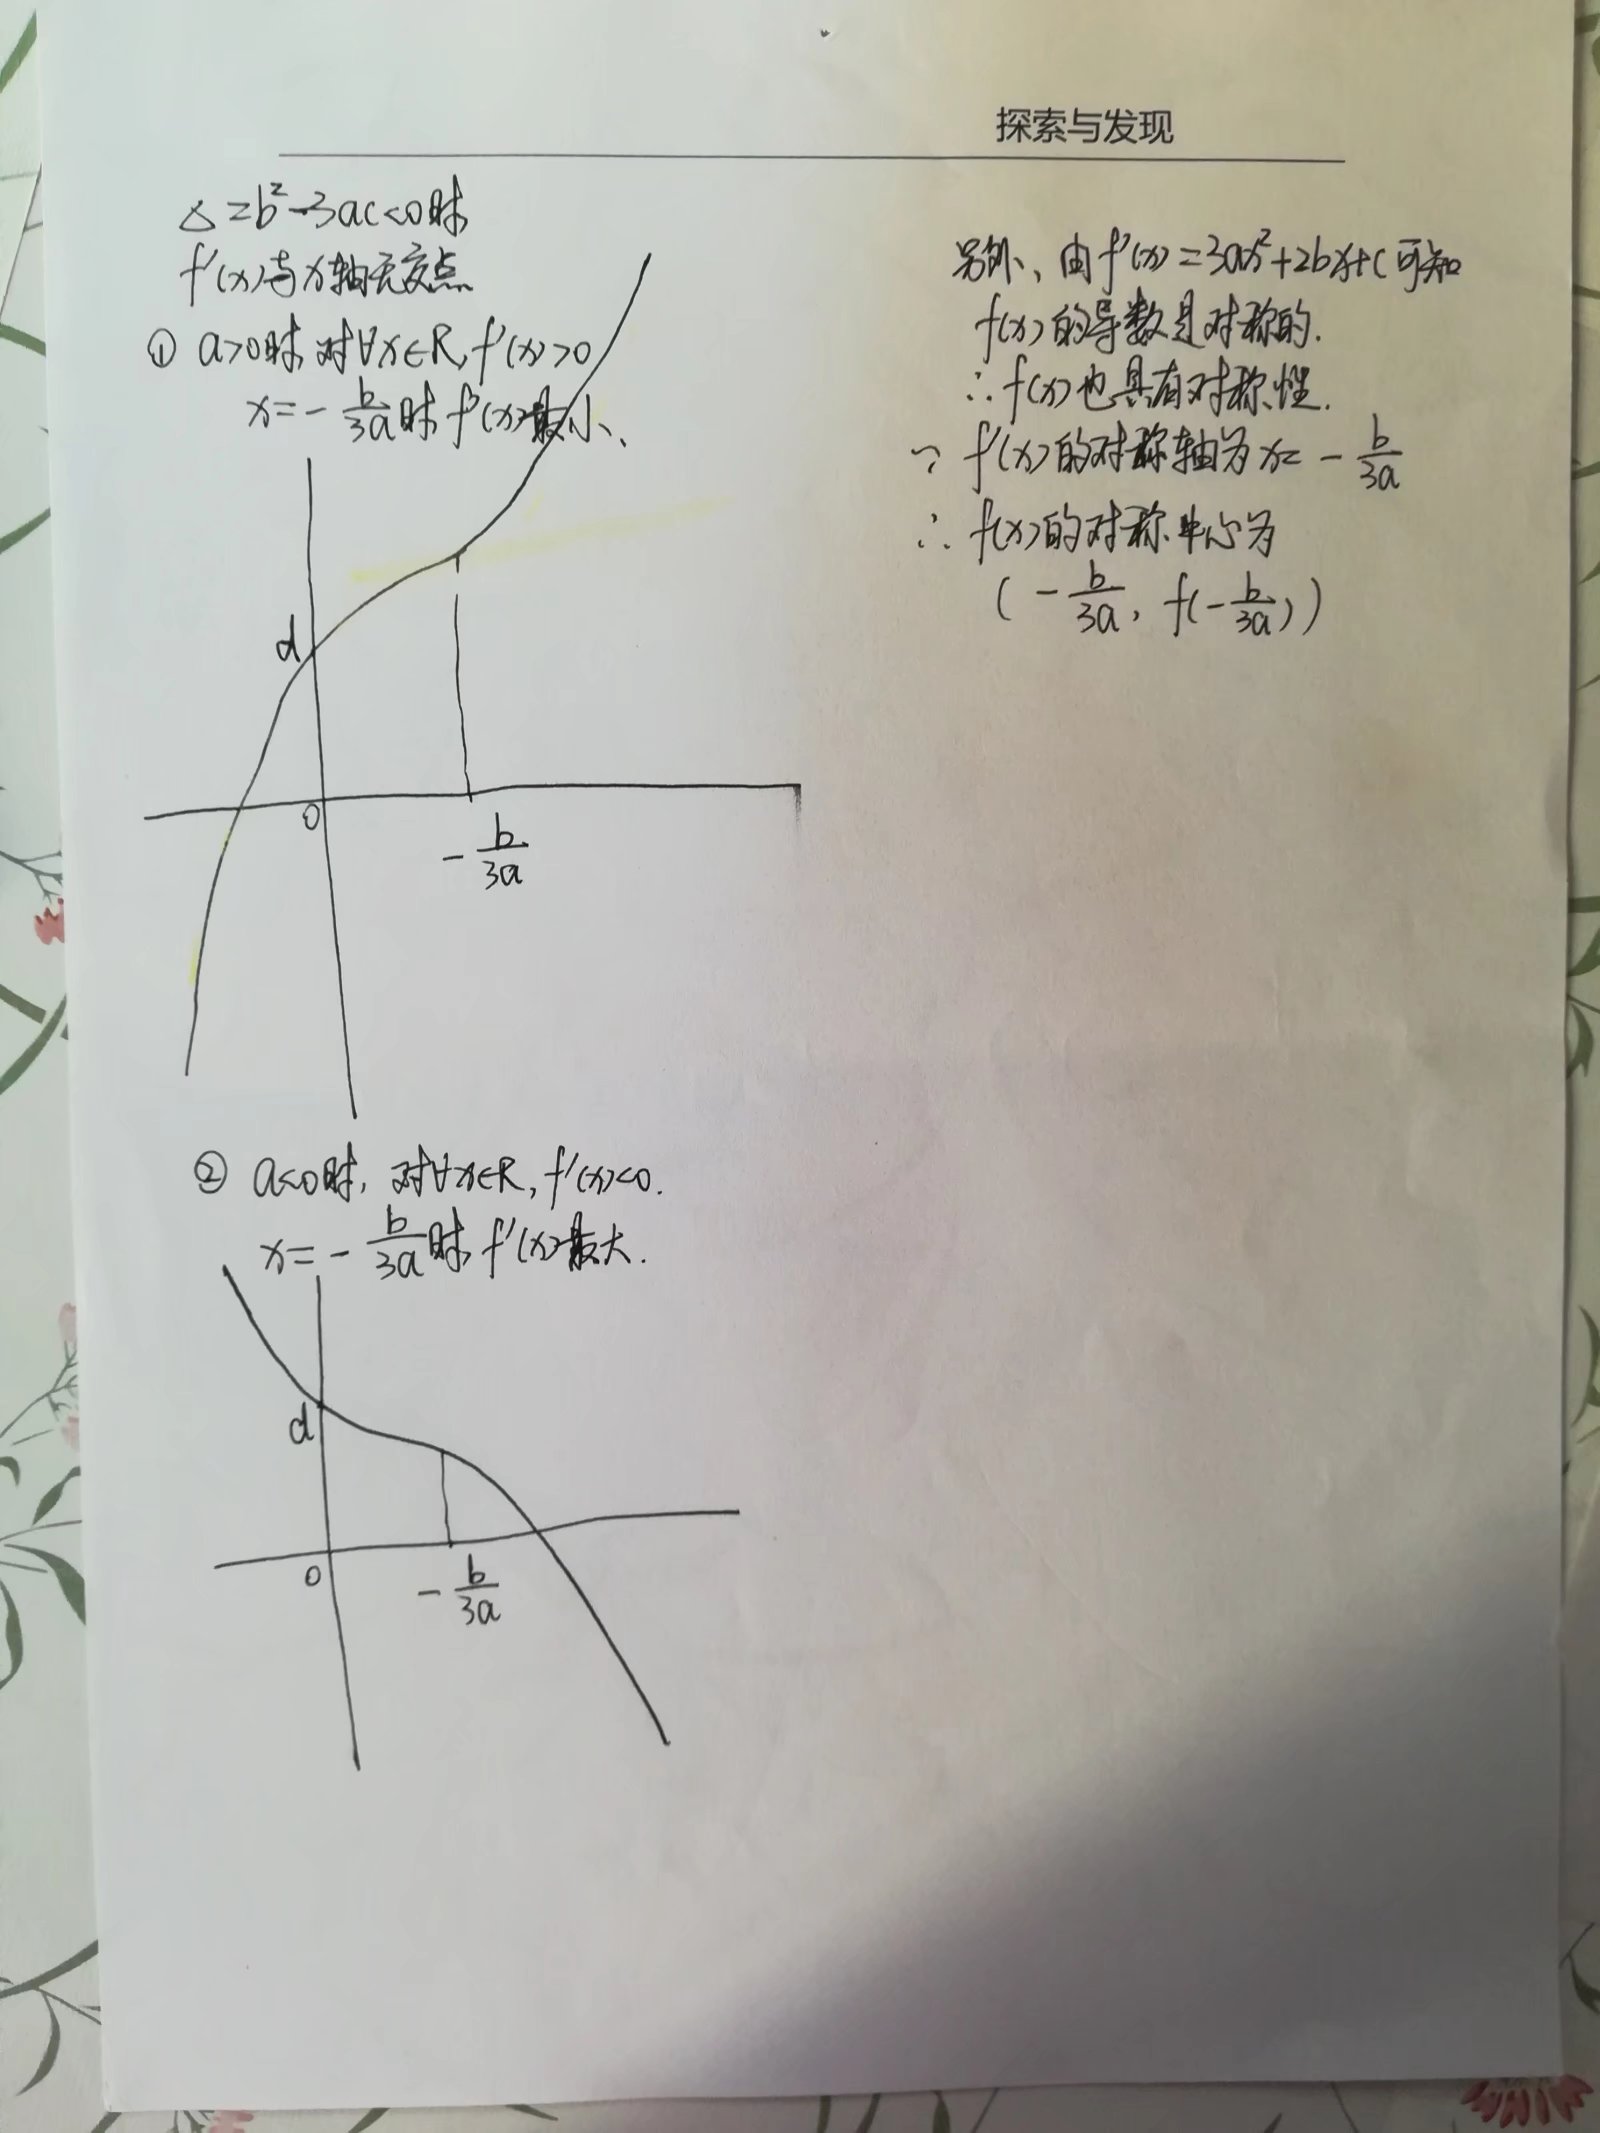 探索与发现
△=b²-3ac<0时
f'(x)与x轴无交点
① a>0时,对∀x∈R,f'(x)>0
x=-b/3a时f'(x)最小、
d
0
-b/3a
② a<0时,对∀x∈R,f'(x)<0.
x=-b/3a时f'(x)最大.
d
0
-b/3a
另外、由f'(x)=3ax²+2bx+c可知
f(x)的导数是对称的.
∴f(x)也具有对称性.
∵f'(x)的对称轴为x=-b/3a
∴f(x)的对称中心为
(-b/3a,f(-b/3a))